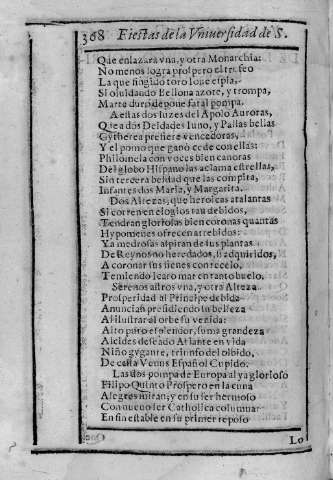 368 Fiestas de la Vniuersidad de S.
Que enlazara vna, y otra Monarchia:
No menos logra prospero el trofeo
La que fingido toro loue espia,
Si oluidando Bellona azote, y trompa,
Marte duro depone fatal pompa.
A estas dos luzes del Apolo Auroras,
Que a dos Deidades Iuno, y Palas bellas
Cytherea prefiere vencedoras,
Y el pomo que ganò cede con ellas:
Philomela con voces bien canoras
Del globo Hispano las aclama estrellas,
Sin tercera beldad que las compita,
Infantes dos Maria, y Margarita.
Dos Altezas, que heroicas atalantas
Si corren en elogios tan debidos,
Tendran gloriosas bien coronas quantas
Hypomenes ofrecen atrebidos:
Ya medrosas aspiran de sus plantas
De Reynos no heredados, si adquiridos,
A coronar sus sienes con recelo,
Temiendo Icaro mar en tanto buelo.
Serenos astros vna, y otra Alteza
Prosperidad al Principe debida
Anuncias presidiendo su belleza
A ilustrar al orbe su venida:
Alto puro esplendor, suma grandeza
Alcides deseado Atlante en vida
Niño gygante, triunfo del olbido,
De casta Venus Español Cupido.
Las dos pompa de Europa al ya glorioso
Filipo Quinto Prospero en la cuna
Alegres miran; y en su ser hermoso
Con nueuo ser Catholica columna:
En fin estable en su primer reposo
Lo